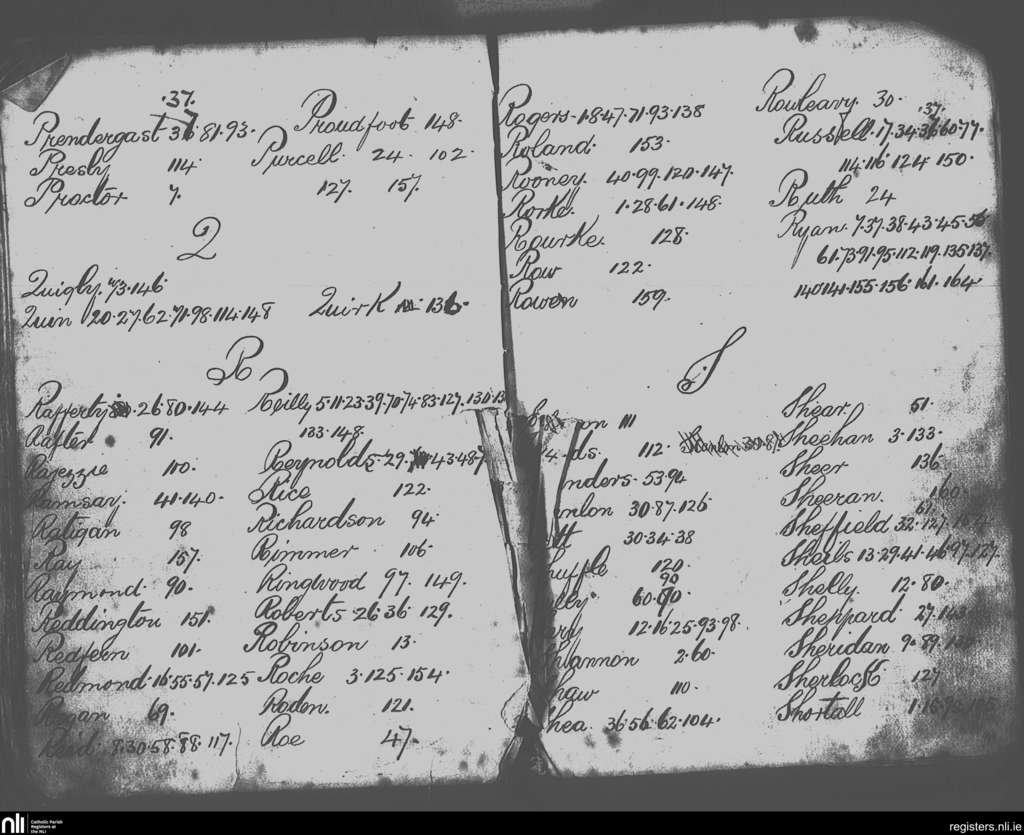 ·37.
Prendergast 36·81·93.
Presly 114·
Proctor 7.
Proudfoot 148·
Purcell· 24· 102·
127· 157·
Q
Quigly 73·146
Quin 20·27·62·71·98·114·148
Quirk 136·
R
Rafferty ·26·80·144
Rafter 91·
Ragezzie 100·
Ramsay· 41·140·
Ratigan 98
Ray 157·
Raymond· 90·
Reddington 151·
Redfern 101·
Redmond·16·55·57·125
Regan 69·
Reid· 8·30·58·88·117·
Reilly 5·11·23·39·70·74·83·127·130·13
133·148·
Reynolds·29· 43·487
Rice 122·
Richardson 94·
Rimmer 106·
Ringwood 97· 149·
Roberts 26·36· 129·
Robinson 13·
Roche 3·125·154·
Roden· 121·
Roe 47·
Rogers·1·8·47·71·93·138
Roland· 153·
Rooney· 40·99·120·147·
Rorke· 1·28·61·148·
Rourke· 128·
Row 122·
Rowen 159·
Rouleavy 30·
·37·
Russell·17·34·36·60·77·
114·116·124 150·
Ruth 24
Ryan· 7·37·38·43·45·56
61·73·91·95·112·119·135·137·
140·141·155·156·161·164
S
on 111
ds· 112·
nders·53·94
nlon 30·87·126
tt 30·34·38
huffle 120·
90
lly 60·70·
erly 12·16·25·93·98·
hannon 2·60·
haw 110·
hea 36·56·62·104·
Shear· 51·
Sheehan 3·133·
Sheer 136
Sheeran· 160·
61·
Sheffield 32·127·
Sheils 13·29·41·46·97·127·
Shelly· 12·80·
Sheppard 27·
Sheridan 9·89·
Sherlock 127
Shortall
nli
Catholic Parish
Registers at
the NLI
registers.nli.ie